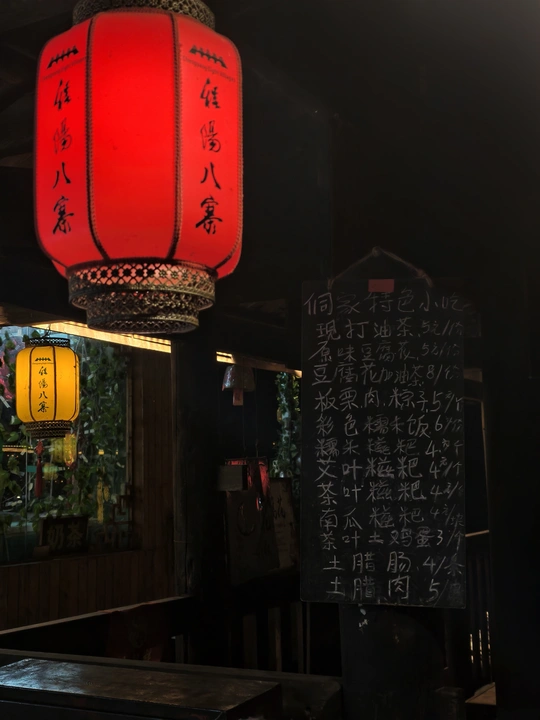 程陽八寨
程陽八寨
程陽八寨
侗家特色小吃
现打油茶 5元/碗
原味豆腐花 5元/碗
豆腐花加油茶 8/碗
板栗肉粽子 5元/个
彩色糯米饭 6/
糯米糍粑 4元/个
艾叶糍粑 4元/个
茶叶糍粑 4元/个
南瓜糍粑 4元/
茶叶土鸡蛋 3/个
土腊肠 4/条
土腊肉 5/
奶茶